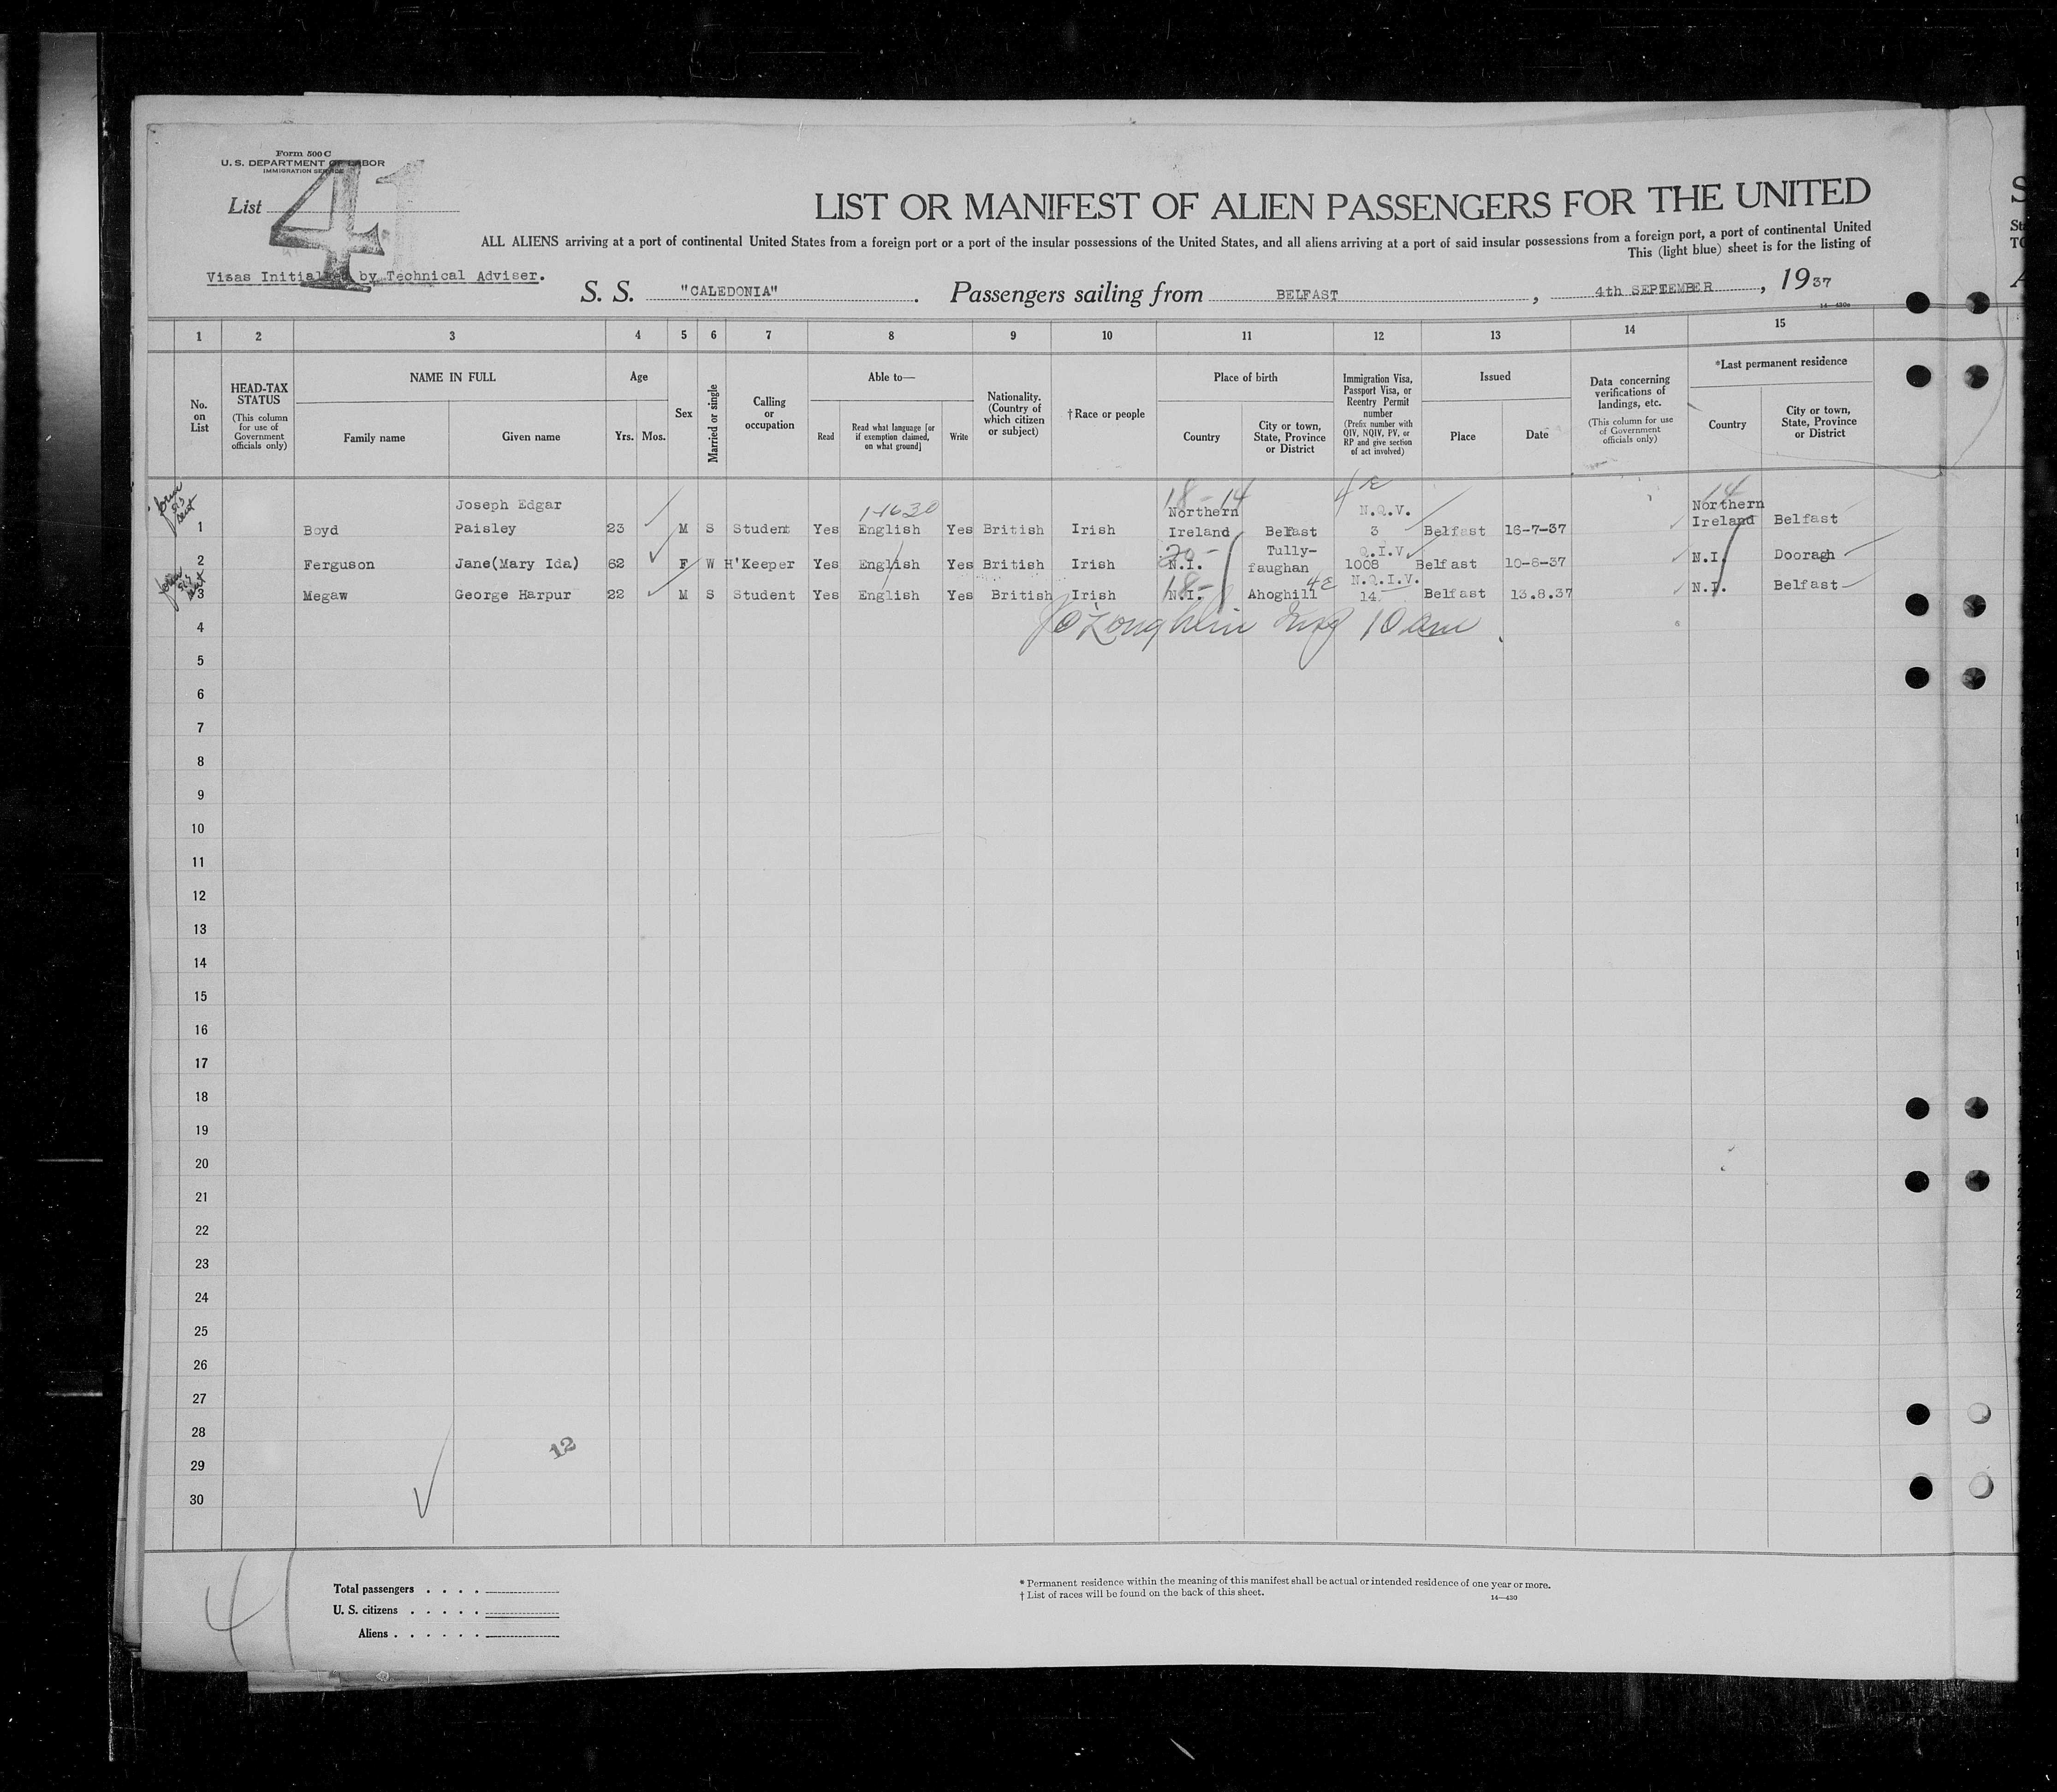 Form 500 C
U. S. DEPARTMENT OF LABOR
IMMIGRATION SERVICE
List 41
LIST OR MANIFEST OF ALIEN PASSENGERS FOR THE UNITED
ALL ALIENS arriving at a port of continental United States from a foreign port or a port of the insular possessions of the United States, and all aliens arriving at a port of said insular possessions from a foreign port, a port of continental United
This (light blue) sheet is for the listing of
Visas Initialled by Technical Adviser.
S. S. "CALEDONIA". Passengers sailing from BELFAST, 4th SEPTEMBER, 1937
1 2 3 4 5 6 7 8 9 10 11 12 13 14 15
No. on List
HEAD-TAX STATUS (This column for use of Government officials only)
NAME IN FULL
Family name Given name
Age
Yrs. Mos.
Sex
Married or single
Calling or occupation
Able to—
Read
Read what language [or if exemption claimed, on what ground]
Write
Nationality. (Country of which citizen or subject)
†Race or people
Place of birth
Country
City or town, State, Province or District
Immigration Visa, Passport Visa, or Reentry Permit number (Prefix number with QIV, NQIV, PV, or RP and give section of act involved)
Issued
Place Date
Data concerning verifications of landings, etc. (This column for use of Government officials only)
*Last permanent residence
Country
City or town, State, Province or District
1 Boyd Joseph Edgar Paisley 23 M S Student Yes English Yes British Irish Northern Ireland Belfast N.Q.V. 3 Belfast 16-7-37 Northern Ireland Belfast
2 Ferguson Jane(Mary Ida) 62 F W H'Keeper Yes English Yes British Irish N.I. Tully-faughan Q.I.V. 1008 Belfast 10-8-37 N.I. Dooragh
3 Megaw George Harpur 22 M S Student Yes English Yes British Irish N.I. Ahoghill N.Q.I.V. 14 Belfast 13.8.37 N.I. Belfast
4
5
6
7
8
9
10
11
12
13
14
15
16
17
18
19
20
21
22
23
24
25
26
27
28
29
30
12
41
Total passengers . . . .
U. S. citizens . . . . .
Aliens . . . . . .
* Permanent residence within the meaning of this manifest shall be actual or intended residence of one year or more.
† List of races will be found on the back of this sheet.
14—430